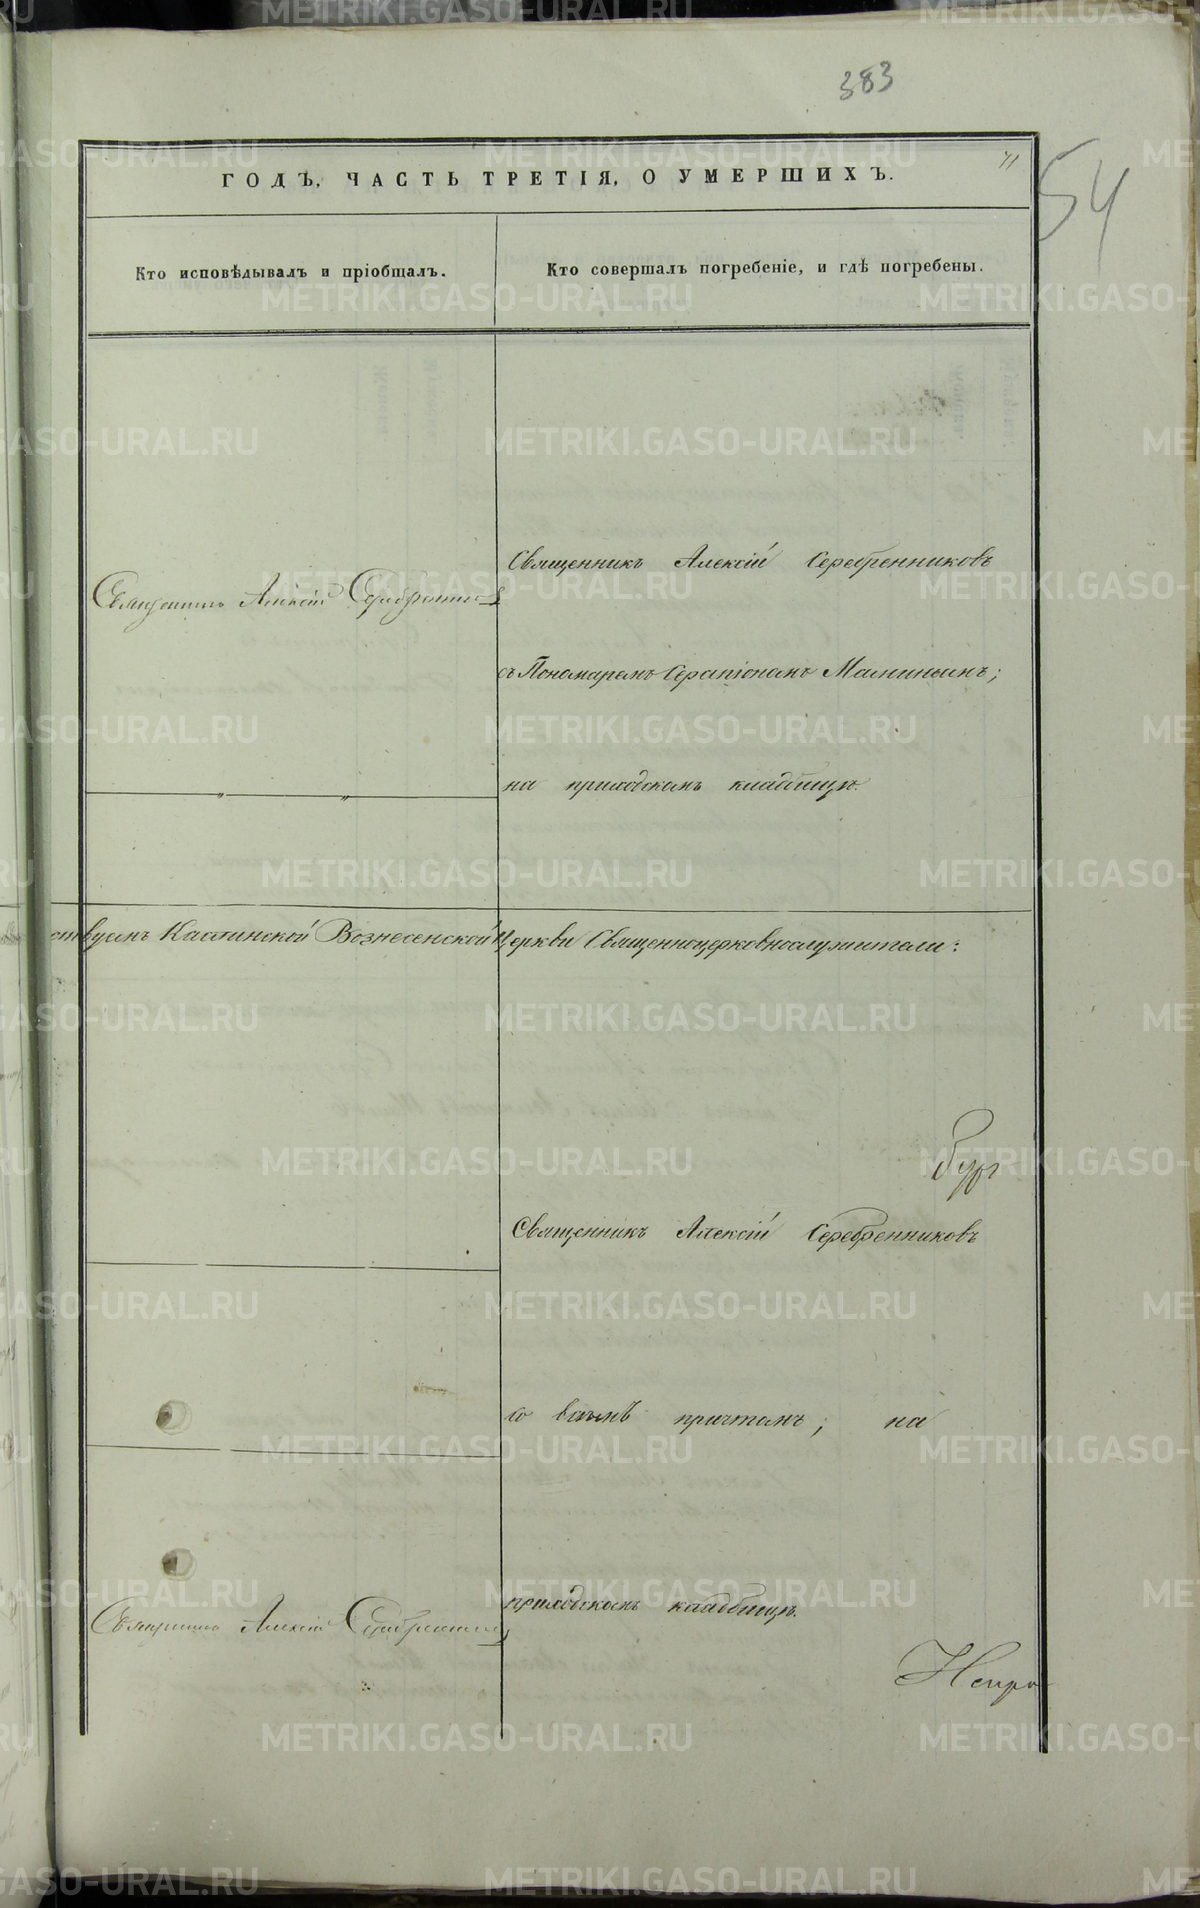 383
71
54
ГОДЪ, ЧАСТЬ ТРЕТІЯ, О УМЕРШИХЪ.
Кто исповѣдывалъ и пріобщалъ.
Кто совершалъ погребеніе, и гдѣ погребены.
Священникъ Алексій Серебренниковъ
Священникъ Алексій Серебренниковъ
съ Пономаремъ Серапіономъ Маминымъ;
на приходскомъ кладбищѣ.
ствуемъ Каслинской Вознесенской Церкви Священноцерковнослужители:
Священникъ Алексій Серебренниковъ
со всѣмъ причтомъ; на
приходскомъ кладбищѣ.
Священникъ Алексій Серебренниковъ
METRIKI.GASO-URAL.RU